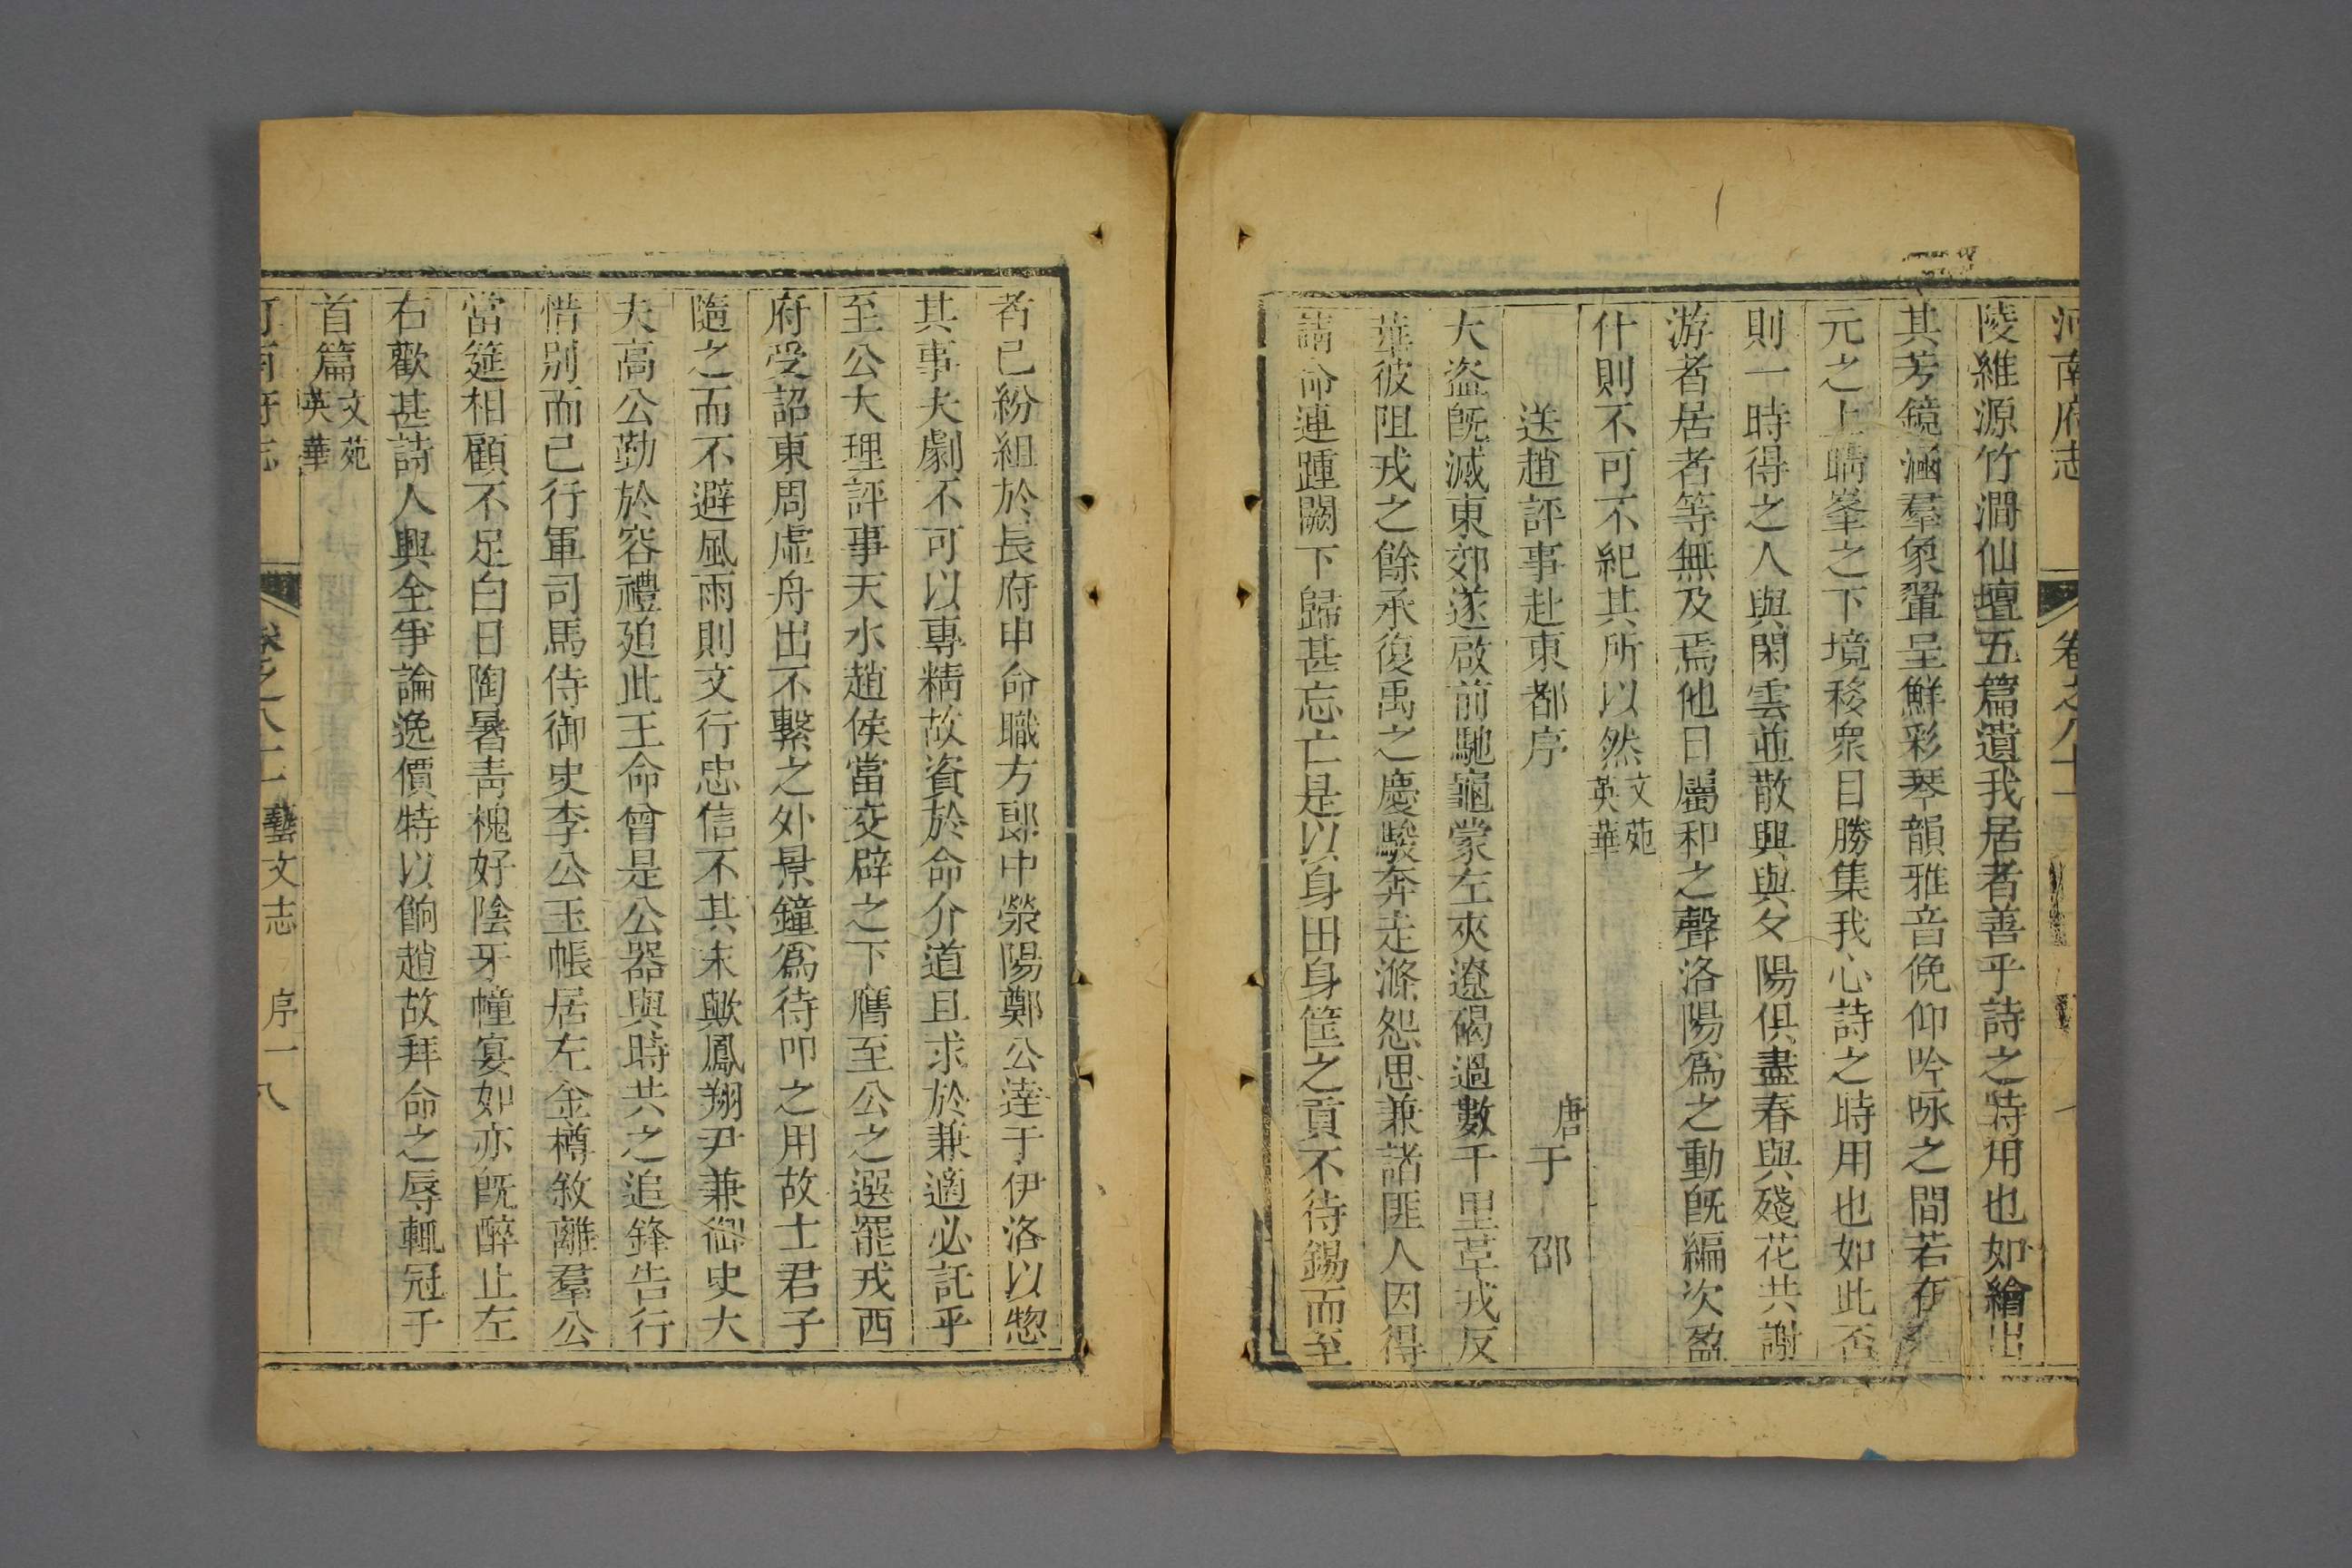 河南府志 卷之八十一
陵維源竹澗仙壇五篇遺我居者善乎詩之時用也如繪出
其芳鏡涵羣象翬呈鮮彩琴韻雅音俛仰吟咏之間若在
元之上晴峯之下境移衆目勝集我心詩之時用也如此否
則一時得之人與閑雲並散興與夕陽俱盡春與殘花共謝
游者居者等無及焉他日屬和之聲洛陽爲之動旣編次盈
什則不可不紀其所以然文苑英華
送趙評事赴東都序 唐于邵
大盜旣滅東郊遂啟前馳龜蒙左夾遼碣過數千里革戎反
華彼阻戎之餘承復禹之慶駿奔走滌怨思兼諸匪人因得
請命連踵闕下歸甚忘亡是以身田身筐之貢不待錫而至
者已紛組於長府申命職方郎中滎陽鄭公達于伊洛以惣
其事夫劇不可以專精故資於命介道且求於兼適必託乎
至公大理評事天水趙侯當交辟之下膺至公之選罷戎西
府受詔東周虛舟出不繫之外景鐘爲待叩之用故士君子
隨之而不避風雨則文行忠信不其末歟鳳翔尹兼御史大
夫高公勤於容禮廹此王命曾是公器與時共之追鋒告行
惜别而已行軍司馬侍御史李公玉帳居左金樽敘離羣公
當筵相顧不足白日陶暑靑槐好陰牙幢宴如亦旣醉止左
右歡甚詩人興全爭論逸價特以餉趙故拜命之辱輒冠于
首篇文苑英華
河南府志 卷之八十一 藝文志 序一 八